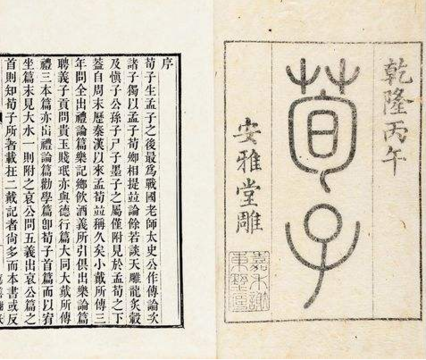 乾隆丙午
荀子
安雅堂雕
序
荀子生孟子之後最為戰國老師太史公作傳論次
諸子獨以孟子荀卿相提並論餘若談天雕龍炙轂
及慎子公孫子尸子墨子之屬僅附見於孟荀之下
蓋自周末歷秦漢以來孟荀並稱久矣小戴所傳三
年問全出禮論篇樂記鄉飲酒義所引俱出樂論篇
聘義子貢問貴玉賤珉亦與德行篇大同大戴所傳
禮三本篇亦出禮論篇勸學篇卽荀子首篇而以宥
坐篇末見大水一則附之哀公問五義出哀公篇之
首則知荀子所著載在二戴記者尚多而本書或反